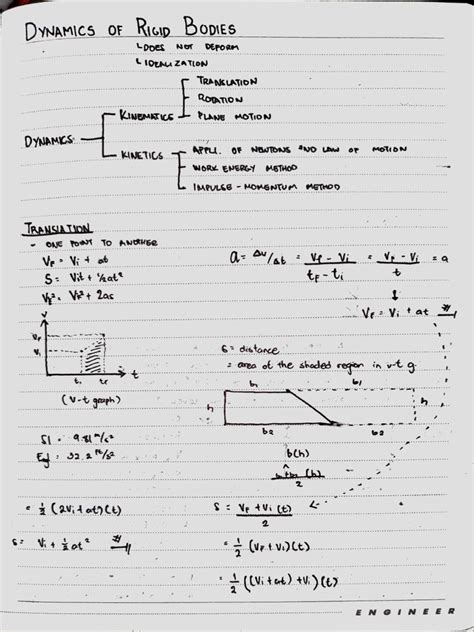 DYNAMICS OF RIGID BODIES
DOES NOT DEFORM
IDEALIZATION
DYNAMICS
KINEMATICS
TRANSLATION
ROTATION
PLANE MOTION
KINETICS
APPLI. OF NEWTONS 2ND LAW OF MOTION
WORK ENERGY METHOD
IMPULSE - MOMENTUM METHOD
TRANSLATION
- ONE POINT TO ANOTHER
Vf = Vi + at
S = Vit + ½at²
Vf² = Vi² + 2as
a = Δv/Δt = Vf - Vi / tf - ti = Vf - Vi / t = a
Vf = Vi + at #
V
Vf
Vi
ti tf t
(V-t graph)
S = distance
= area of the shaded region in v-t g.
b1 b1
h h
b2 b2
b(h)
b1+b2 (h) / 2
SI = 9.81 m/s²
Eng = 32.2 ft/s²
S = Vf + Vi (t) / 2
= ½ (Vf + Vi)(t)
= ½ ((Vi + at) + Vi)(t)
= ½ (2Vi + at)(t)
S = Vi + ½at² #
ENGINEER